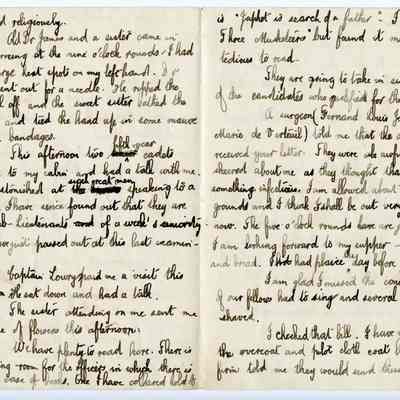 d religiously.
As Dr James and a sister came in
at the nine o'clock rounds I had
large heat spots on my left hand. Dr
sent out for a needle. He ripped the
off and the sweet sister bathed the
and tied the hand up in some mauve
bandages.
This afternoon two fifth year cadets
to my cabin and had a talk with me.
astonished at such great men speaking to a
I have since found out that they are
sub-lieutenants and of a week's seniority
just passed out at this last examin-
Captain Lowry paid me a visit this
He sat down and had a talk.
The sister attending on me sent me
of flowers this afternoon.
We have plenty to read here. There is
room for the officers in which there is
case of books. One I have collared hold of
is "Japhet in search of a father". I
Three Musketeers" but found it
tedious to read.
They are going to take in
of the candidates who qualified for the
A surgeon (Fernand Louis
Marie de Verteuil) told me that the
received your letter. They were
about me as they thought that
something infectious. I am allowed about
grounds and I think I shall be out very
now. The five o'clock rounds have are
I am looking forward to my supper —
and bread. Had plaice day before
I am glad I missed the
of our fellows had to sing and several
shaved.
I checked that bill. I have
the overcoat and pilot cloth coat
firm told me they would send these